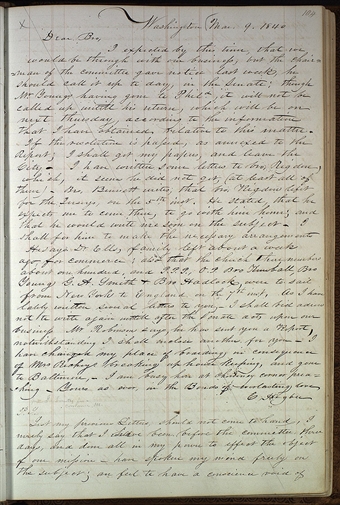 Washington Mar. 9. 1840
Dear Bro,
I expected by this time, that we
would be through with our business, but the chair
man of the committee gave notice last week, he
should call it up to day, in the Senate, though
Mr Young having gone to Phila, it will not be
called up until his return, which will be on
next Thursday, according to the information
that I have obtained, relative to this matter.
If the resolution is passed, as annexed to the
Report; I shall get my papers, and leave the
City. I have written some letters to Bro. Rigdon,
which, it seems he did not get, (at least all of
them). Mr. Bennett writes, that Mr. Rigdon left
for the Jerseys, on the 5th inst. He stated, that he
expects me to come there, to go with him home; and
that he would write me soon on the subject. I
shall for him to make the necessary arrangements
He says Dr. Ells, & family left about a week
ago, for commerce; also that the church they number
about one hundred, and
Young, G. A. Smith & Bro Hadlock, were to sail
from New York to England on the 7th inst. As I have
lately written several letters to you, I shall
not write again until after the Senate acts upon our
business Mr Robinson says, he has sent you a Report,
notwithstanding I shall enclose another for you. I
have changed my place of boarding in consequence
of Mrs breaking up house keeping, and gone
to Baltimore. I am
Yours as ever in the Bonds of everlasting love
E Higbee
Lest my previous Letters, should not come to hand, I
merely say that I have been before the committee three
days, and done all in my power to effect the object
of our mission have spoken my mind freely on
the subject; and feel to have a conscience void of